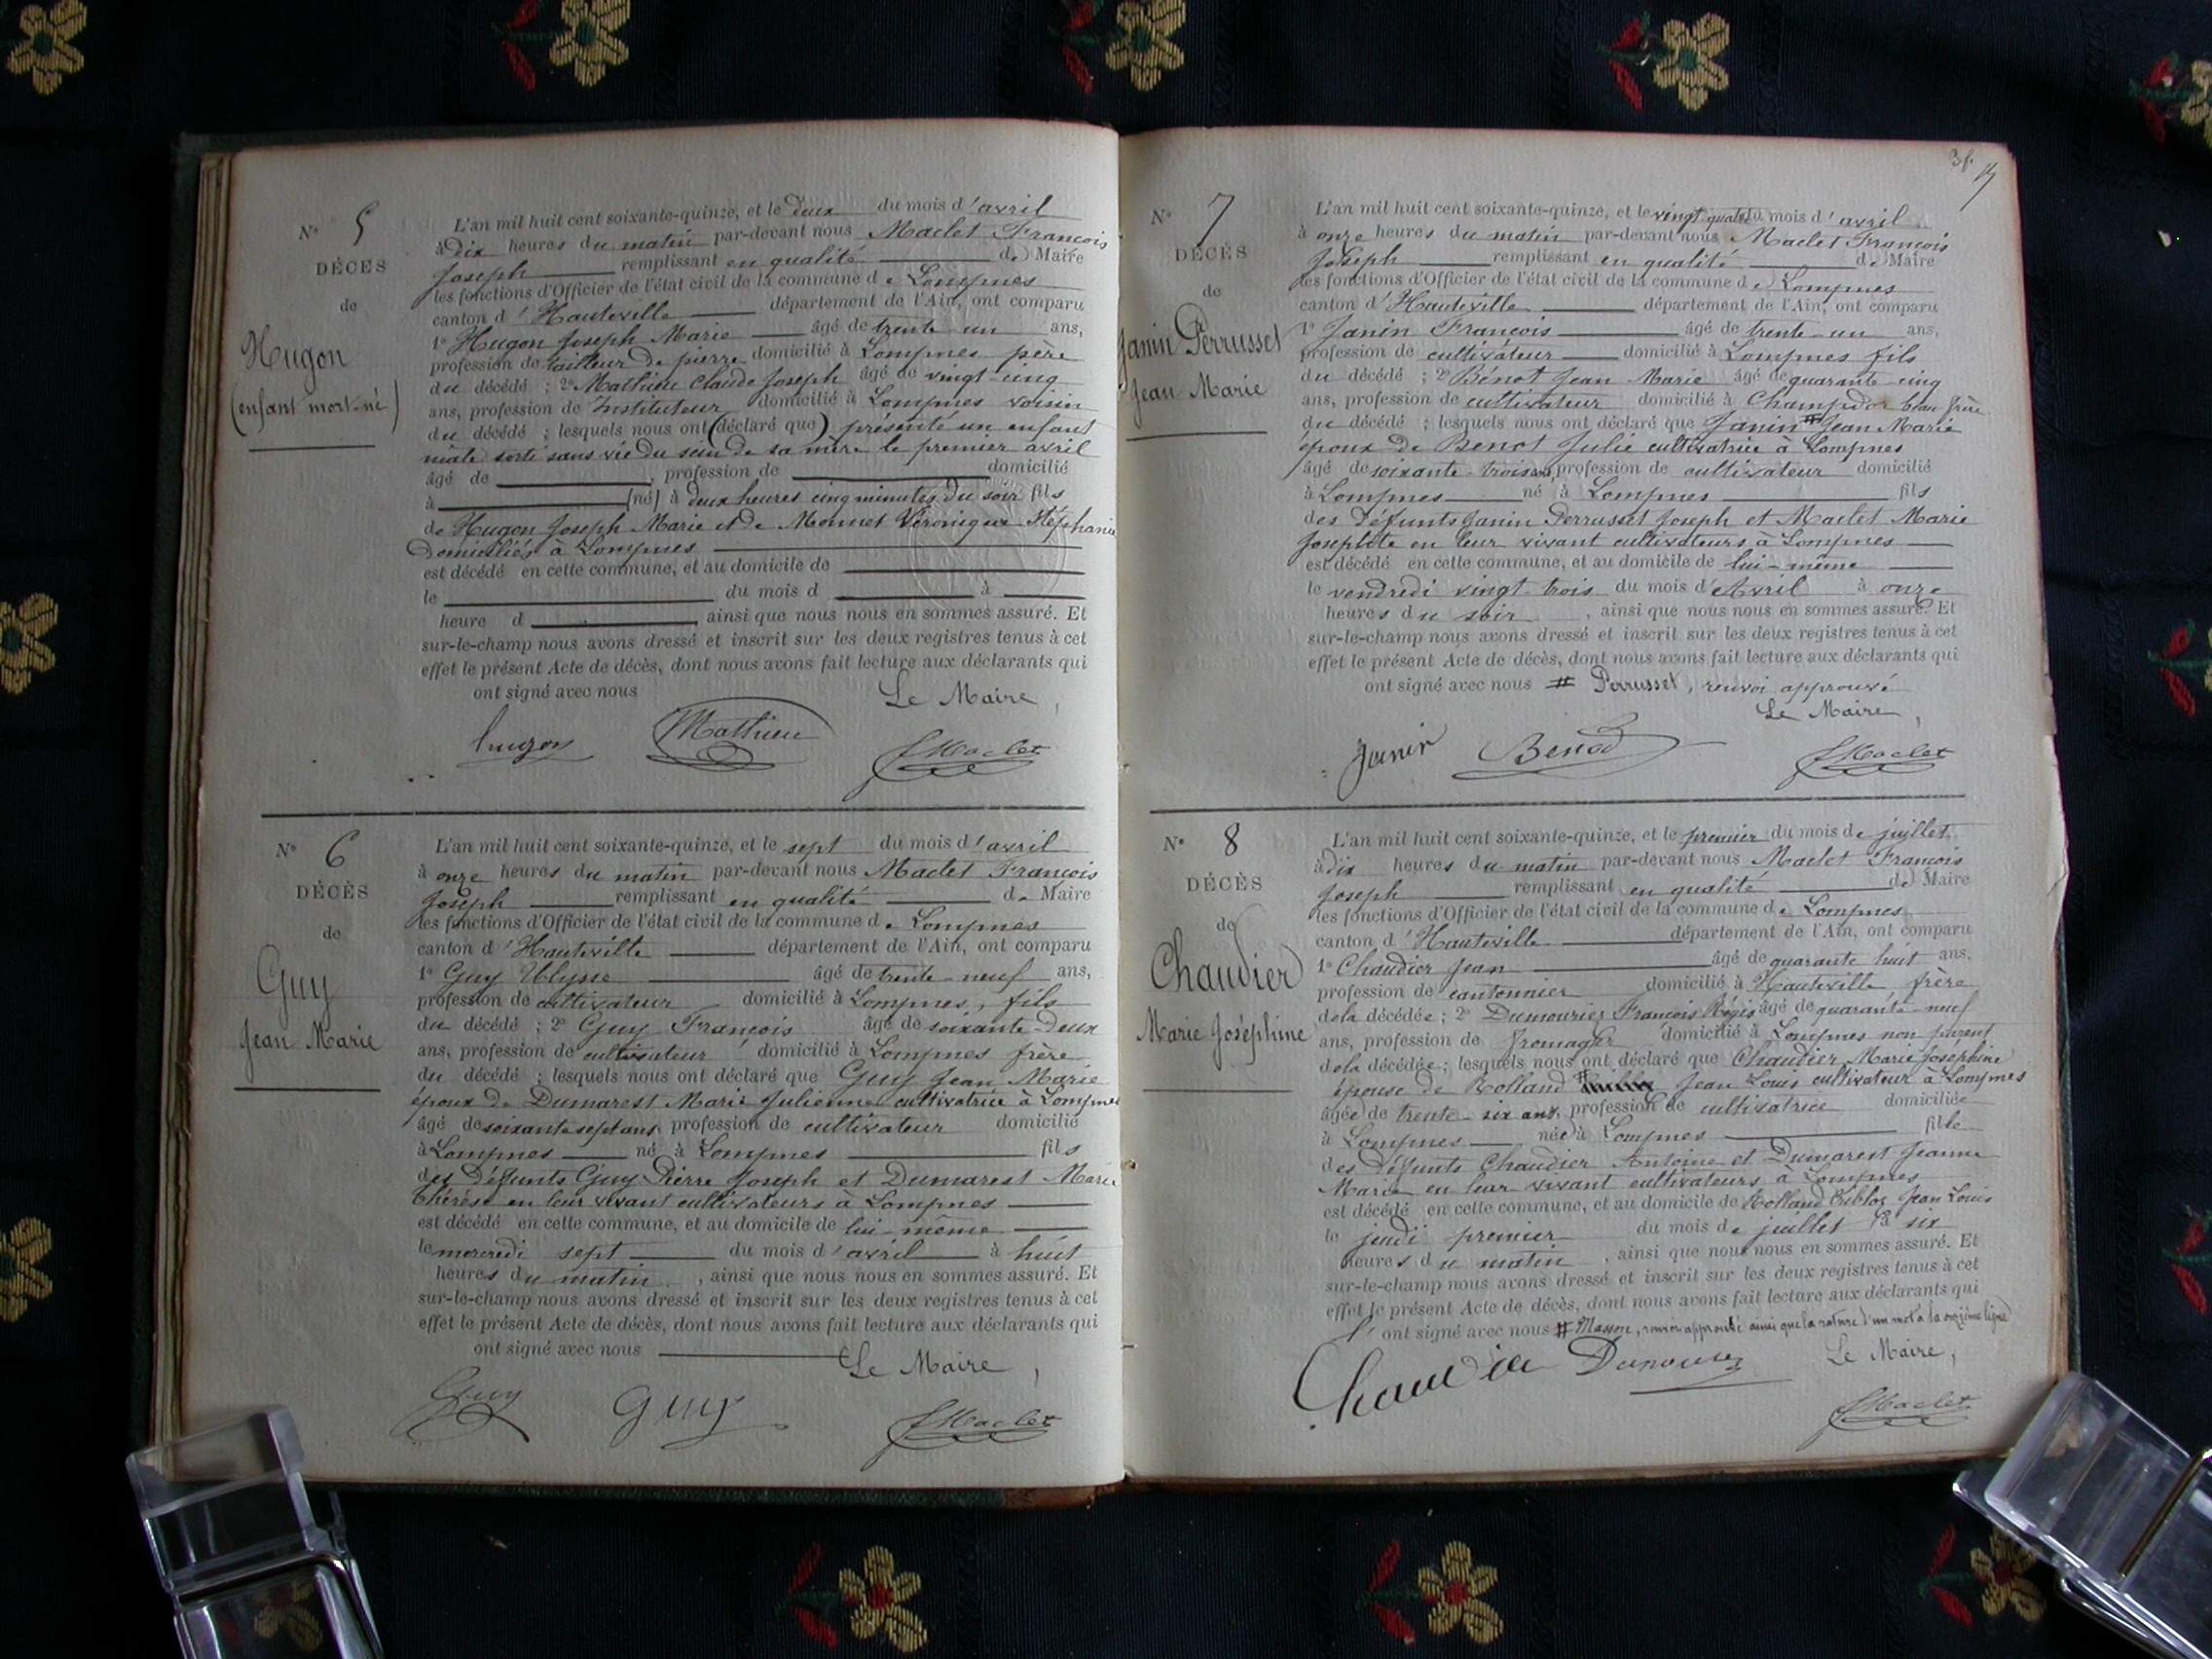 N° 5
DÉCES
de
Hugon
(enfant mort-né)
L'an mil huit cent soixante-quinze, et le deux du mois d'avril
à dix heures du matin par-devant nous Maclet François
Joseph remplissant en qualité de Maire
les fonctions d'Officier de l'état civil de la commune de Lompnes
canton d'Hauteville département de l'Ain, ont comparu
1° Hugon Joseph Marie âgé de trente-un ans,
profession de tailleur de pierre domicilié à Lompnes père
du décédé ; 2° Mathieu Claude Joseph âgé de vingt-cinq
ans, profession de Instituteur domicilié à Lompnes voisin
du décédé ; lesquels nous ont (déclaré que) présenté un enfant
male sorti sans vie du sein de sa mère le premier avril
âgé de , profession de domicilié
à (né) à deux heures cinq minutes du soir fils
de Hugon Joseph Marie et de Monnet Véronique Stéphanie
Domiciliés à Lompnes
est décédé en cette commune, et au domicile de
le du mois d à
heure d , ainsi que nous nous en sommes assuré. Et
sur-le-champ nous avons dressé et inscrit sur les deux registres tenus à cet
effet le présent Acte de décès, dont nous avons fait lecture aux déclarants qui
ont signé avec nous
Le Maire,
hugon Mathieu fMaclet
N° 6
DÉCÈS
de
Guy
Jean Marie
L'an mil huit cent soixante-quinze, et le sept du mois d'avril
à onze heures du matin par-devant nous Maclet François
Joseph remplissant en qualité de Maire
les fonctions d'Officier de l'état civil de la commune de Lompnes
canton d'Hauteville département de l'Ain, ont comparu
1° Guy Ulysse âgé de trente-neuf ans,
profession de cultivateur domicilié à Lompnes, fils
du décédé ; 2° Guy François âgé de soixante-deux
ans, profession de cultivateur domicilié à Lompnes frère
du décédé ; lesquels nous ont déclaré que Guy Jean Marie
époux de Dumarest Marie Julienne cultivatrice à Lompnes
âgé de soixante sept ans, profession de cultivateur domicilié
à Lompnes né à Lompnes fils
des défunts Guy Pierre Joseph et Dumarest Marie
Thérèse en leur vivant cultivateurs à Lompnes
est décédé en cette commune, et au domicile de lui-même
le mercredi sept du mois d'avril à huit
heures du matin , ainsi que nous nous en sommes assuré. Et
sur-le-champ nous avons dressé et inscrit sur les deux registres tenus à cet
effet le présent Acte de décès, dont nous avons fait lecture aux déclarants qui
ont signé avec nous
Le Maire,
Guy Guy fMaclet
3f.
N° 7
DÉCÈS
de
Janin Perrusset
Jean Marie
L'an mil huit cent soixante-quinze, et le vingt quatre du mois d'avril
à onze heures du matin par-devant nous Maclet François
Joseph remplissant en qualité de Maire
les fonctions d'Officier de l'état civil de la commune de Lompnes
canton d'Hauteville département de l'Ain, ont comparu
1° Janin François âgé de trente-un ans,
profession de cultivateur domicilié à Lompnes fils
du décédé ; 2° Bénot Jean Marie âgé de quarante-cinq
ans, profession de cultivateur domicilié à Champdor beau frère
du décédé ; lesquels nous ont déclaré que Janin # Jean Marie
époux de Benot Julie cultivatrice à Lompnes
âgé de soixante-trois ans, profession de cultivateur domicilié
à Lompnes né à Lompnes fils
des défunts Janin Perrusset Joseph et Maclet Marie
Josephte en leur vivant cultivateurs à Lompnes
est décédé en cette commune, et au domicile de lui-même
le vendredi vingt-trois du mois d'Avril à onze
heures du soir , ainsi que nous nous en sommes assuré. Et
sur-le-champ nous avons dressé et inscrit sur les deux registres tenus à cet
effet le présent Acte de décès, dont nous avons fait lecture aux déclarants qui
ont signé avec nous # Perrusset, renvoi approuvé
Le Maire,
Janin Benod fMaclet
N° 8
DÉCÈS
de
Chaudier
Marie Joséphine
L'an mil huit cent soixante-quinze, et le premier du mois de juillet
à dix heures du matin par-devant nous Maclet François
Joseph remplissant en qualité de Maire
les fonctions d'Officier de l'état civil de la commune de Lompnes
canton d'Hauteville département de l'Ain, ont comparu
1° Chaudier Jean âgé de quarante huit ans,
profession de cantonnier domicilié à Hauteville frère
de la décédée ; 2° Dumourier François Régis âgé de quarante-neuf
ans, profession de fromager domicilié à Lompnes non parent
de la décédée ; lesquels nous ont déclaré que Chaudier Marie Joséphine
épouse de Rolland # Jean Louis cultivateur à Lompnes
âgée de trente-six ans, profession de cultivatrice domiciliée
à Lompnes née à Lompnes fille
des défunts Chaudier Antoine et Dumarest Jeanne
Marie en leur vivant cultivateurs à Lompnes
est décédé en cette commune, et au domicile de Rolland Jean Louis
le jeudi premier du mois de juillet à six
heures du matin , ainsi que nous nous en sommes assuré. Et
sur-le-champ nous avons dressé et inscrit sur les deux registres tenus à cet
effet le présent Acte de décès, dont nous avons fait lecture aux déclarants qui
ont signé avec nous # Masson, renvoi approuvé ainsi que la rature d'un mot à la onzième ligne
Le Maire,
Chaudier Dumourier fMaclet